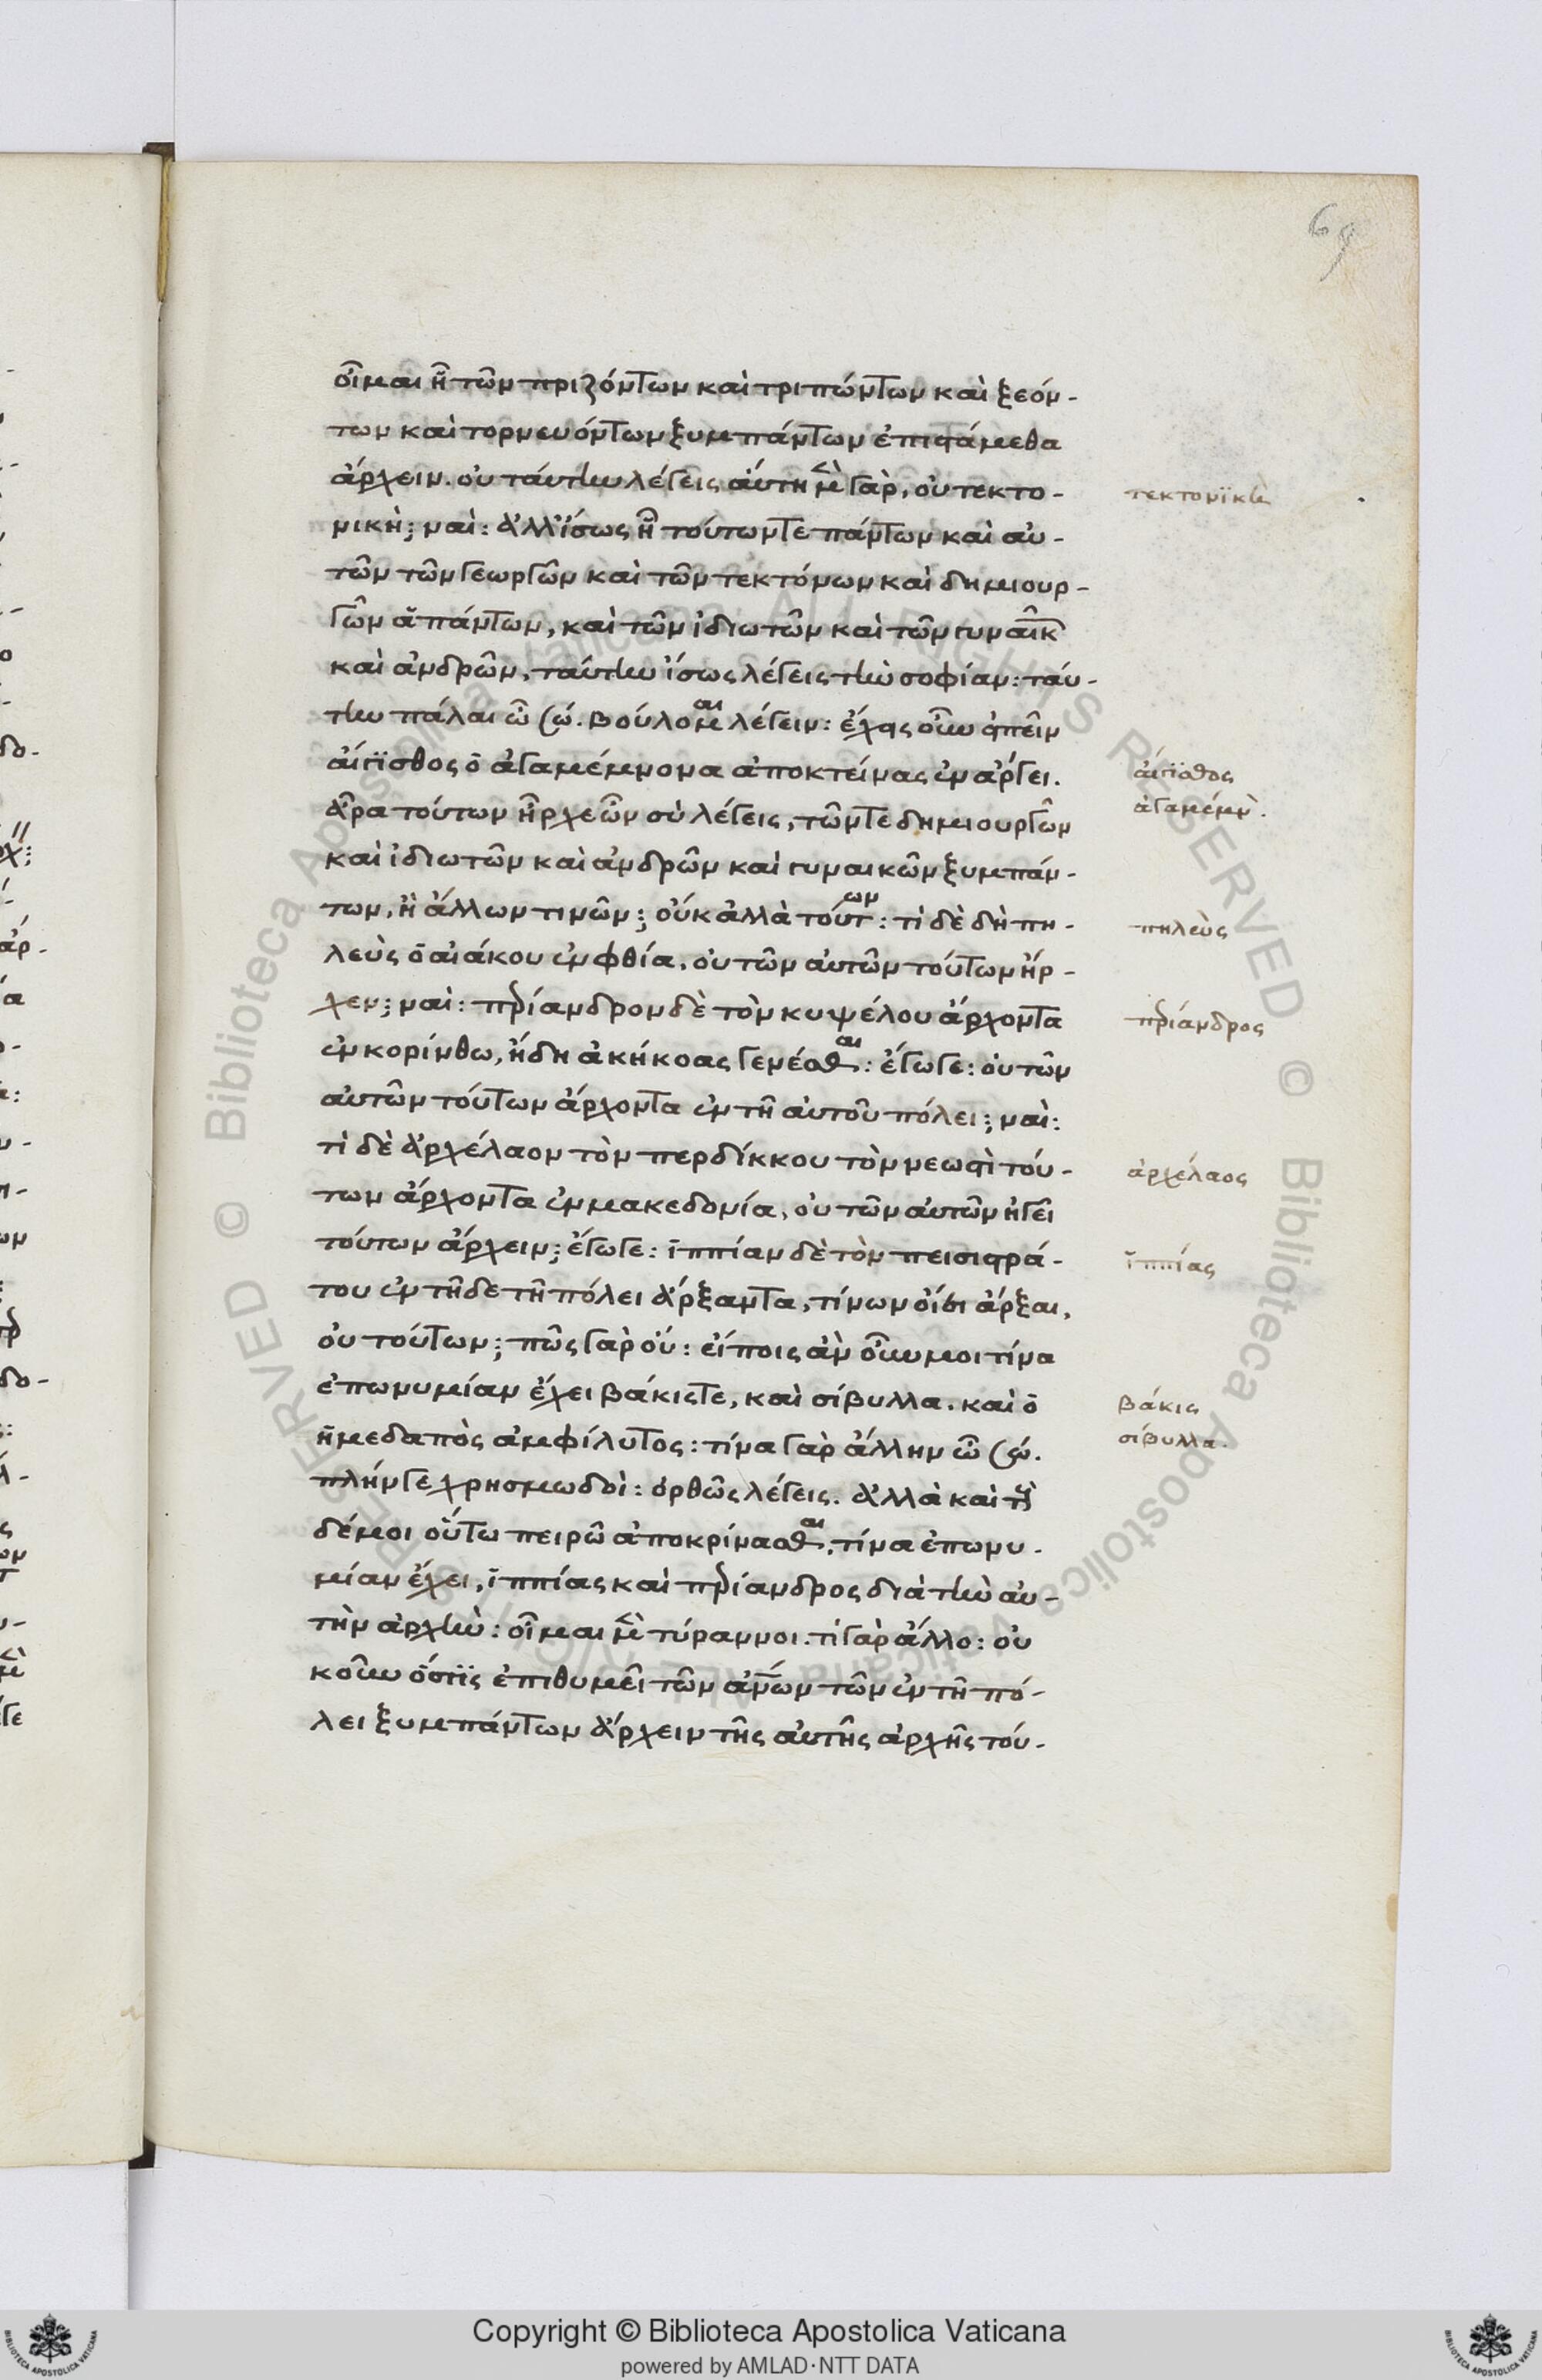 69
οἶμαι ἧ τῶν πριζόντων καὶ τριπώντων καὶ ξεόν-
των καὶ τορνευόντων ξυμπάντων ἐπιστάμεθα
ἄρχειν. οὐ ταύτην λέγεις αὕτη μὲν γὰρ, οὐ τεκτο-
νικὴ; ναὶ: ἀλλ' ἴσως ἧ τούτων τε πάντων καὶ αὐ-
τῶν τῶν γεωργῶν καὶ τῶν τεκτόνων καὶ δημιουρ-
γῶν ἁπάντων, καὶ τῶν ἰδιωτῶν καὶ τῶν γυναικῶν
καὶ ἀνδρῶν, ταύτην ἴσως λέγεις τὴν σοφίαν: ταύ-
την πάλαι ὦ σώ. βούλομαι λέγειν: ἔχεις οὖν εἰπεῖν
αἴγισθος ὁ ἀγαμέμνονα ἀποκτείνας ἐν ἄργει.
ἆρα τούτων ἦρχε ὧν σὺ λέγεις, τῶν τε δημιουργῶν
καὶ ἰδιωτῶν καὶ ἀνδρῶν καὶ γυναικῶν ξυμπάν-
των, ἢ ἄλλων τινῶν; οὔκ ἀλλὰ τούτων: τὶ δὲ δὴ πη-
λεὺς ὁ αἰάκου ἐν φθία. οὐ τῶν αὐτῶν τούτων ἦρ-
χεν; ναὶ: περίανδρον δὲ τὸν κυψέλου ἄρχοντα
ἐν κορίνθω, ἤδη ἀκήκοας γενέσθαι: ἔγωγε: οὐ τῶν
αὐτῶν τούτων ἄρχοντα ἐν τῆ αὐτοῦ πόλει; ναὶ:
τὶ δὲ ἀρχέλαον τὸν περδίκκου τὸν νεωστὶ τού-
των ἄρχοντα ἐν μακεδονία, οὐ τῶν αὐτῶν ἡγεῖ
τούτων ἄρχειν; ἔγωγε: ἱππίαν δὲ τὸν πεισιστρά-
του ἐν τῆδε τῆ πόλει ἄρξαντα, τίνων οἴει ἄρξαι,
οὐ τούτων; πῶς γὰρ οὔ: εἴποις ἂν οὖν μοι τίνα
ἐπωνυμίαν ἔχει βάκις τε, καὶ σίβυλλα. καὶ ὁ
ἡμεδαπὸς ἀμφίλυτος: τίνα γὰρ ἄλλην ὦ σώ.
πλήν γε χρησμωδοὶ: ὀρθῶς λέγεις. ἀλλὰ καὶ τοὺς
δέ μοι οὕτω πειρῶ ἀποκρίνασθαι, τίνα ἐπωνυ-
μίαν ἔχει, ἱππίας καὶ περίανδρος διὰ τὴν αὐ-
τὴν ἀρχὴν: οἶμαι μὲν τύραννοι. τί γὰρ ἄλλο: οὐ
κοῦν ὅστις ἐπιθυμεῖ τῶν ἀνων τῶν ἐν τῆ πό-
λει ξυμπάντων ἄρχειν τῆς αὐτῆς ἀρχῆς τού-
τεκτονϊκὴ
αἴγισθος
ἀγαμέμν.
πηλεὺς
περίανδρος
ἀρχέλαος
ἱππίας
βάκις
σίβυλλα.
Copyright © Biblioteca Apostolica Vaticana
powered by AMLAD·NTT DATA